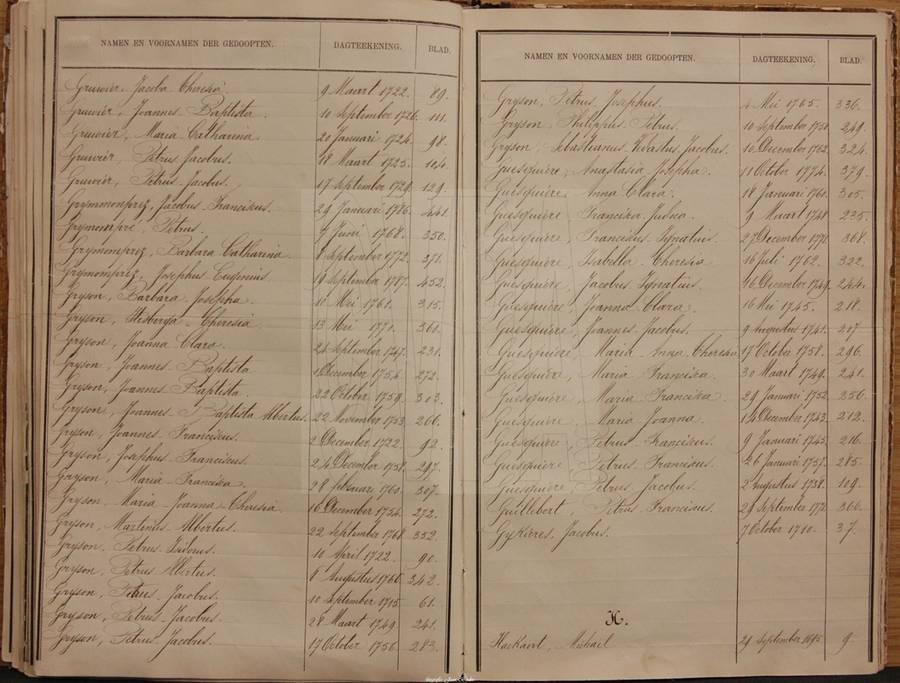 NAMEN EN VOORNAMEN DER GEDOOPTEN. DAGTEEKENING. BLAD.
Gruwier, Jacoba Theresia 9 Maart 1722. 89.
Gruwier, Joannes Baptista. 10 September 1726. 111.
Gruwier, Maria Catharina 20 Januari 1724. 98.
Gruwier, Petrus Jacobus. 18 Maart 1725. 104.
Gruwier, Petrus Jacobus. 17 September 1729. 129.
Grymmonprez, Jacobus Franciscus. 29 Januari 1786. 441.
Grymonpré, Petrus. 7 Juni 1768. 350.
Grymonprez, Barbara Catharina 1 September 1772. 371.
Grymonprez, Josephus Eugenius 19 September 1787. 452.
Gryson, Barbara Josepha. 11 Mei 1761. 315.
Gryson, Theresia 13 Mei 1771. 361.
Gryson, Joanna Clara. September 1747. 231.
Gryson, Joannes Baptista December 1754. 272.
Gryson, Joannes Baptista. 22 October 1759. 303.
Gryson, Joannes Baptista Albertus. 22 November 1753 266.
Gryson, Joannes Franciscus. 2 December 1722. 92.
Gryson, Josephus Franciscus. 24 December 1758. 297.
Gryson, Maria Francisca. 28 februari 1760. 307.
Gryson, Maria Joanna Theresia 16 December 1754. 272.
Gryson, Martinus Albertus. 22 September 1768. 352.
Gryson, Petrus Isidorus. 10 April 1722. 90.
Gryson, Petrus Albertus. 6 Augustus 1766. 342.
Gryson, Petrus Jacobus. 10 September 1715. 61.
Gryson, Petrus Jacobus. 28 Maart 1749. 241.
Gryson, Petrus Jacobus. 17 October 1756. 283.
NAMEN EN VOORNAMEN DER GEDOOPTEN. DAGTEEKENING. BLAD.
Gryson, Petrus Josephus. Mei 1765. 336.
Gryson, Philippus Petrus. 10 September 1750. 249.
Gryson, Sebastianus Jacobus. 10 December 1762. 324.
Guesquiere, Anastasia Josepha. 11 October 1774. 379.
Guesquiere, Anna Clara. 18 Januari 1760. 305.
Guesquiere, Francisca Judoca. 9 Maart 1748 225.
Guesquiere, Franciscus Ignatius. 27 December 1771. 368.
Guesquiere, Isabella Theresia 16 Juli 1762. 322.
Guesquiere, Jacobus Ignatius. 16 December 1749. 244.
Guesquiere, Joanna Clara. 16 Mei 1745. 218.
Guesquiere, Joannes Jacobus. 9 Augustus 1741. 207
Guesquiere, Maria Anna Theresia 17 October 1758. 296.
Guesquiere, Maria Francisca. 30 Maart 1749. 241.
Guesquiere, Maria Francisca 29 Januari 1752. 256.
Guesquiere, Maria Joanna. 14 December 1743. 212.
Guesquiere, Petrus Franciscus. 9 Januari 1745. 216.
Guesquiere, Petrus Franciscus. 26 Januari 1757. 285.
Guesquiere, Petrus Jacobus. 2 Augustus 1738. 109.
Guillebert, Petrus Franciscus. 29 September 1772. 366.
Jacobus. 7 October 1710. 37.
H.
Haekaert, Michael 29 September 1695. 9.